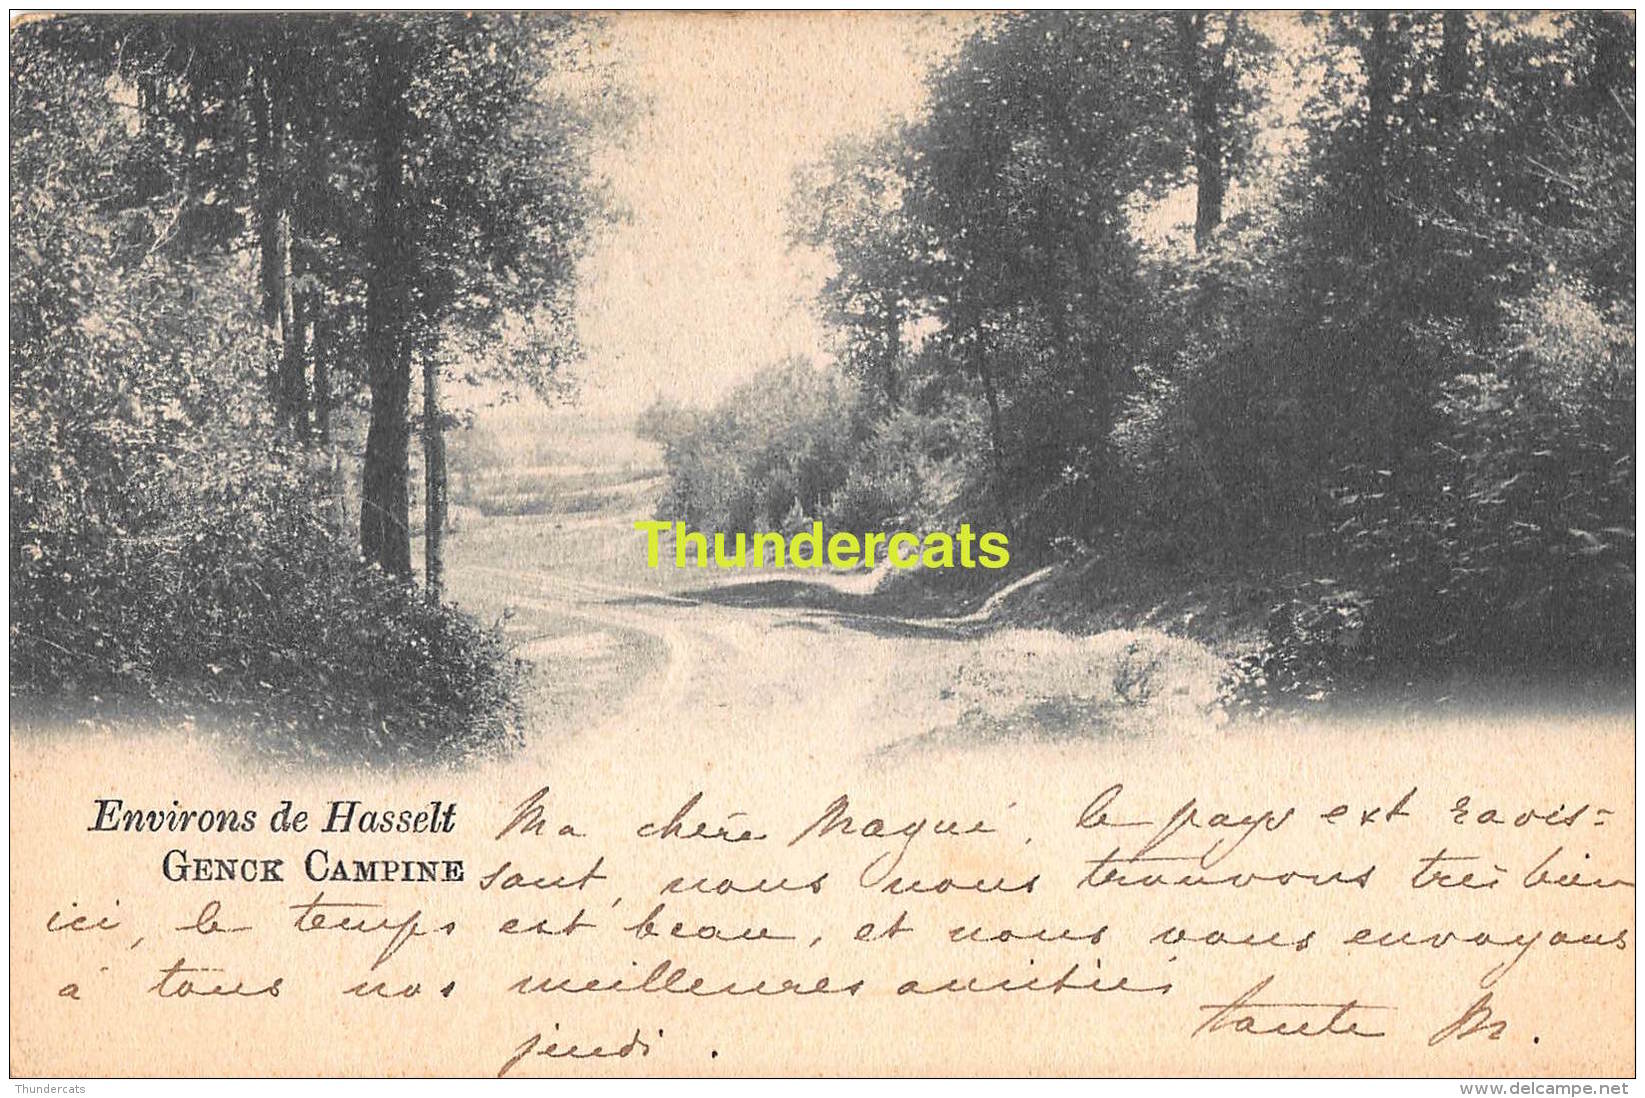 Thundercats
Environs de Hasselt
GENCK CAMPINE
Ma chère Magué, le pays est ravis=
sant, nous nous trouvons très bien
ici, le temps est beau, et nous vous envoyons
à tous nos meilleures amitiés
tante M.
jeudi.
Thundercats
www.delcampe.net